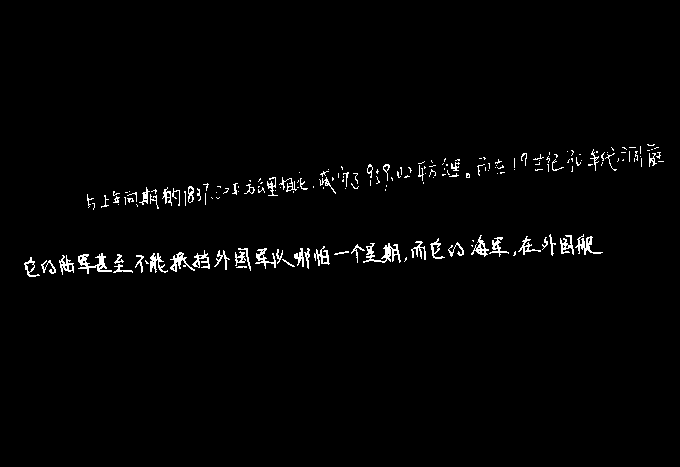 与上年同期的1837.22平方公里相比,减少了959.02平方公里。而在19世纪30年代洞庭
它的陆军甚至不能抵挡外国军队哪怕一个星期,而它的海军,在外国舰